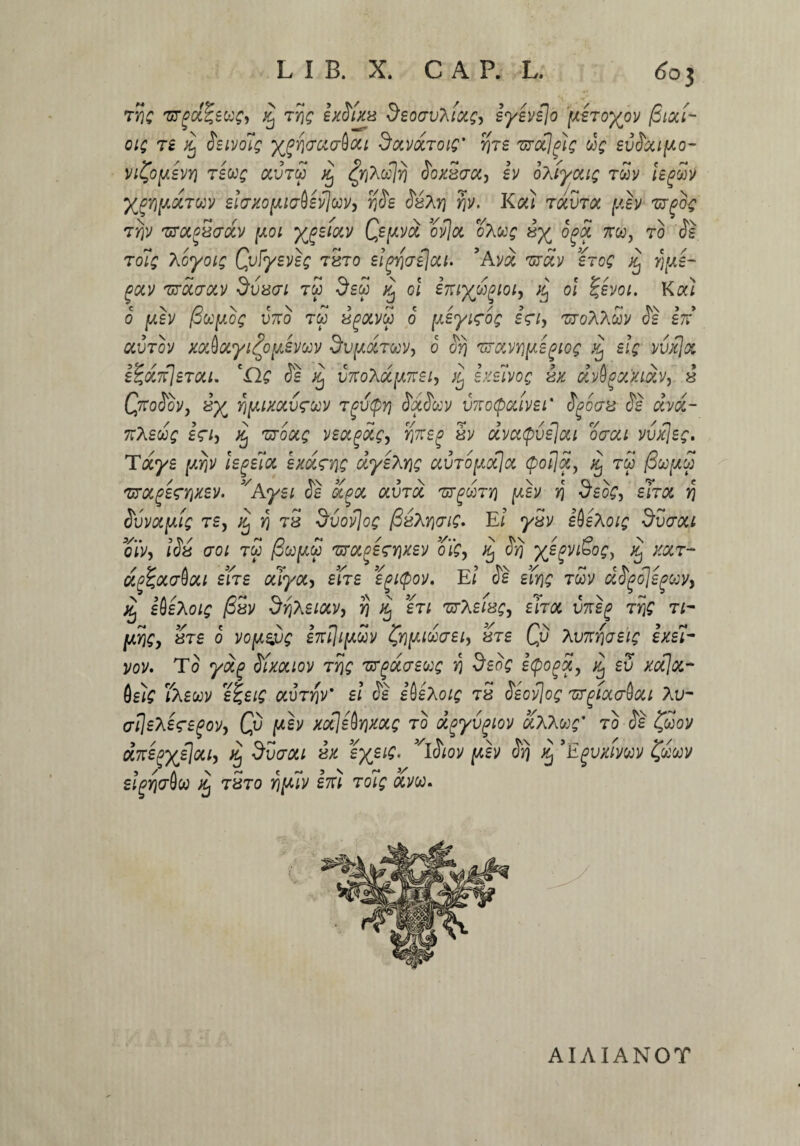 LIB. X. CAP. L. 603
τῆς πράξεως, ϗ τῆς ἐκδίκȣ θεοσυλίας, ἐγένετο μέτοχον βιαί-
οις τε ϗ δεινοῖς χρήσασθαι θανάτοις· ἥτε πατρὶς ὡς εὐδαιμο-
νιζομένη τέως αὐτῷ ϗ ζηλωτὴ δοκȣσα, ἐν ὀλίγαις τῶν ἱερῶν
χρημάτων εἰσκομισθέντων, ἥδε δȣλη ἦν. Καὶ ταῦτα μὲν πρὸς
τὴν παρȣσάν μοι χρείαν ϛεμνὰ ὄντα ὅλως ȣχ ὁρᾶ πω, τὸ δὲ
τοῖς λόγοις ϛυγγενὲς τȣτο εἰρήσεται. Ἀνὰ πᾶν ἔτος ϗ ἡμέ-
ραν πᾶσαν θύȣσι τῷ θεῷ ϗ οἱ ἐπιχώριοι, ϗ οἱ ξένοι. Καὶ
ὁ μὲν βωμὸς ὑπὸ τῷ ȣρανῷ ὁ μέγιϛός ἐϛι, πολλῶν δὲ ἐπ'
αὐτὸν καθαγιζομένων θυμάτων, ὁ δὴ πανημέριος ϗ εἰς νύκτα
ἐξάπτεται. Ὡς δὲ ϗ ὑπολάμπει, ϗ ἐκεῖνος ȣκ ἀνθρακιὰν, ȣ
ϛποδὸν, ȣχ ἡμικαύϛων τρύφη δάδων ὑποφαίνει· δρόσȣ δὲ ἀνά-
πλεώς ἐϛι, ϗ πόας νεαρᾶς, ἥπερ ȣν ἀναφύεται ὅσαι νύκτες.
Τάγε μὴν ἱερεῖα ἑκάϛης ἀγέλης αὐτόματα φοιτᾷ, ϗ τῷ βωμῷ
παρέϛηκεν. Ἄγει δὲ ἄρα αὐτὰ πρώτη μὲν ἡ θεὸς, εἶτα ἡ
δύναμίς τε, ϗ ἡ τȣ θύοντος βȣλησις. Εἰ γȣν ἐθέλοις θῦσαι
οἶν, ἰδȣ σοι τῷ βωμῷ παρέϛηκεν οἶς, ϗ δὴ χέρνιβος, ϗ κατ-
άρξασθαι εἴτε αἶγα, εἴτε ἔριφον. Εἰ δὲ εἴης τῶν ἁδροτέρων,
ϗ ἐθέλοις βȣν θήλειαν, ἢ ϗ ἔτι πλείȣς, εἶτα ὑπὲρ τῆς τι-
μῆς, ȣτε ὁ νομεὺς ἐπιτιμῶν ζημιώσει, ȣτε ϛὺ λυπήσεις ἐκεῖ-
νον. Τὸ γὰρ δίκαιον τῆς πράσεως ἡ θεὸς ἐφορᾷ, ϗ εὖ κατα-
θεὶς ἵλεων ἕξεις αὐτήν· εἰ δὲ ἐθέλοις τȣ δέοντος πρίασθαι λυ-
σιτελέϛερον, ϛὺ μὲν κατέθηκας τὸ ἀργύριον ἄλλως· τὸ δὲ ζῶον
ἀπέρχεται, ϗ θῦσαι ȣκ ἔχεις. Ἴδιον μὲν δὴ ϗ Ἐρυκίνων ζώων
εἰρήσθω ϗ τȣτο ἡμῖν ἐπὶ τοῖς ἄνω.
ΑΙΛΙΑΝΟΥ